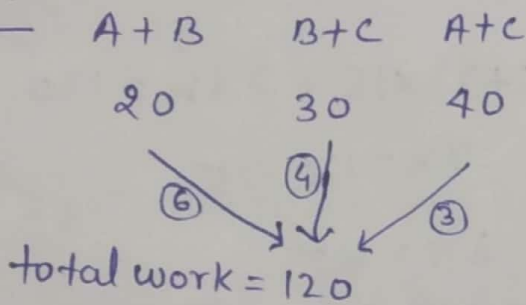 — A + B B+C A+C
20 30 40
6 4 3
total work = 120